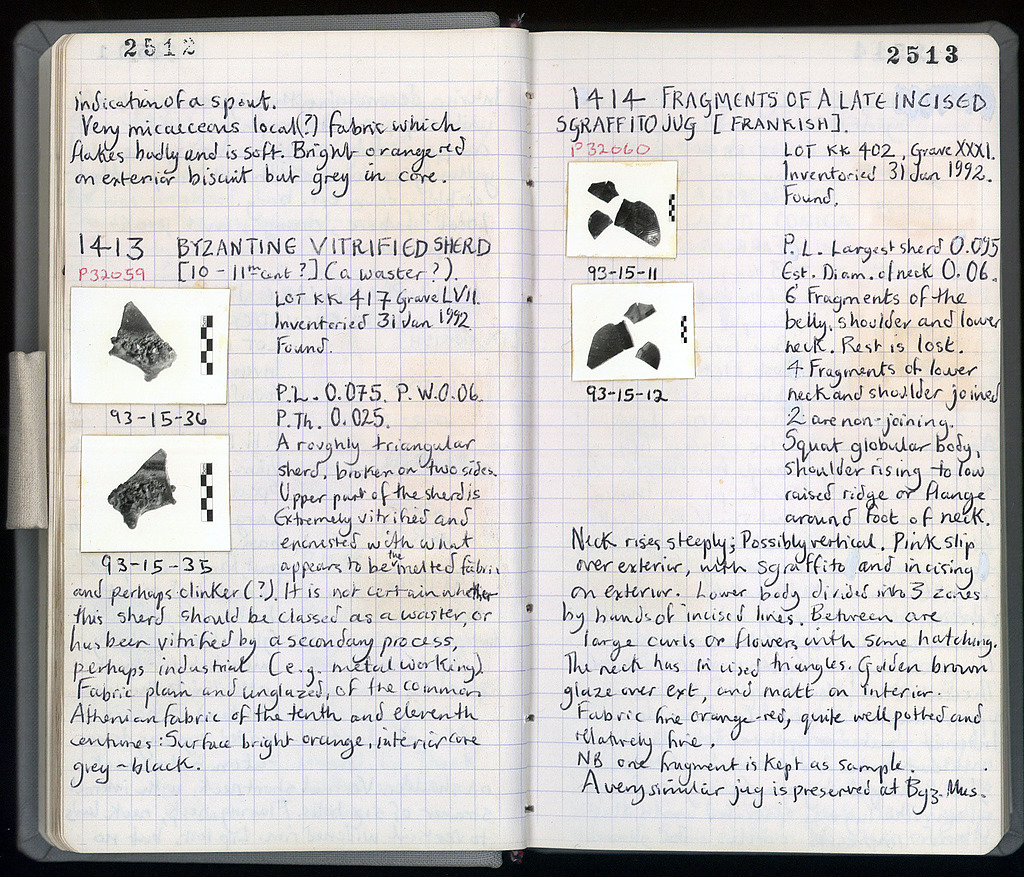 2512
indication of a spout.
Very micaceous local(?) fabric which
flakes badly and is soft. Bright orange red
on exterior biscuit but grey in core.
1413 BYZANTINE VITRIFIED SHERD
P32059 [10-11th cent?] (a waster?).
LOT KK 417 Grave LVII.
Inventoried 31 Jan 1992
Found.
93-15-36
P.L. 0.075. P.W. 0.06.
P.Th. 0.025.
A roughly triangular
sherd, broken on two sides.
Upper part of the sherd is
Extremely vitrified and
encrusted with what
appears to be the melted fabric
93-15-35
and perhaps clinker (?). It is not certain whether
this sherd should be classed as a waster, or
has been vitrified by a secondary process,
perhaps industrial (e.g. metal working)
Fabric plain and unglazed, of the common
Athenian fabric of the tenth and eleventh
centuries: Surface bright orange, interior core
grey-black.
2513
1414 FRAGMENTS OF A LATE INCISED
SGRAFFITO JUG [FRANKISH].
P32060
LOT KK 402, Grave XXXI.
Inventoried 31 Jan 1992.
Found.
93-15-11
P.L. Largest sherd 0.095
Est. Diam. of neck 0.06.
6 Fragments of the
belly, shoulder and lower
neck. Rest is lost.
4 Fragments of lower
neck and shoulder joined
2 are non-joining.
Squat globular body,
shoulder rising to low
raised ridge or flange
around foot of neck.
93-15-12
Neck rises steeply; Possibly vertical. Pink slip
over exterior, with sgraffito and incising
on exterior. Lower body divided into 3 zones
by bands of incised lines. Between are
large curls or flowers with some hatching.
The neck has incised triangles. Golden brown
glaze over ext, and matt on interior.
Fabric fine orange-red, quite well potted and
relatively fine.
NB one fragment is kept as sample.
A very similar jug is preserved at Byz. Mus.